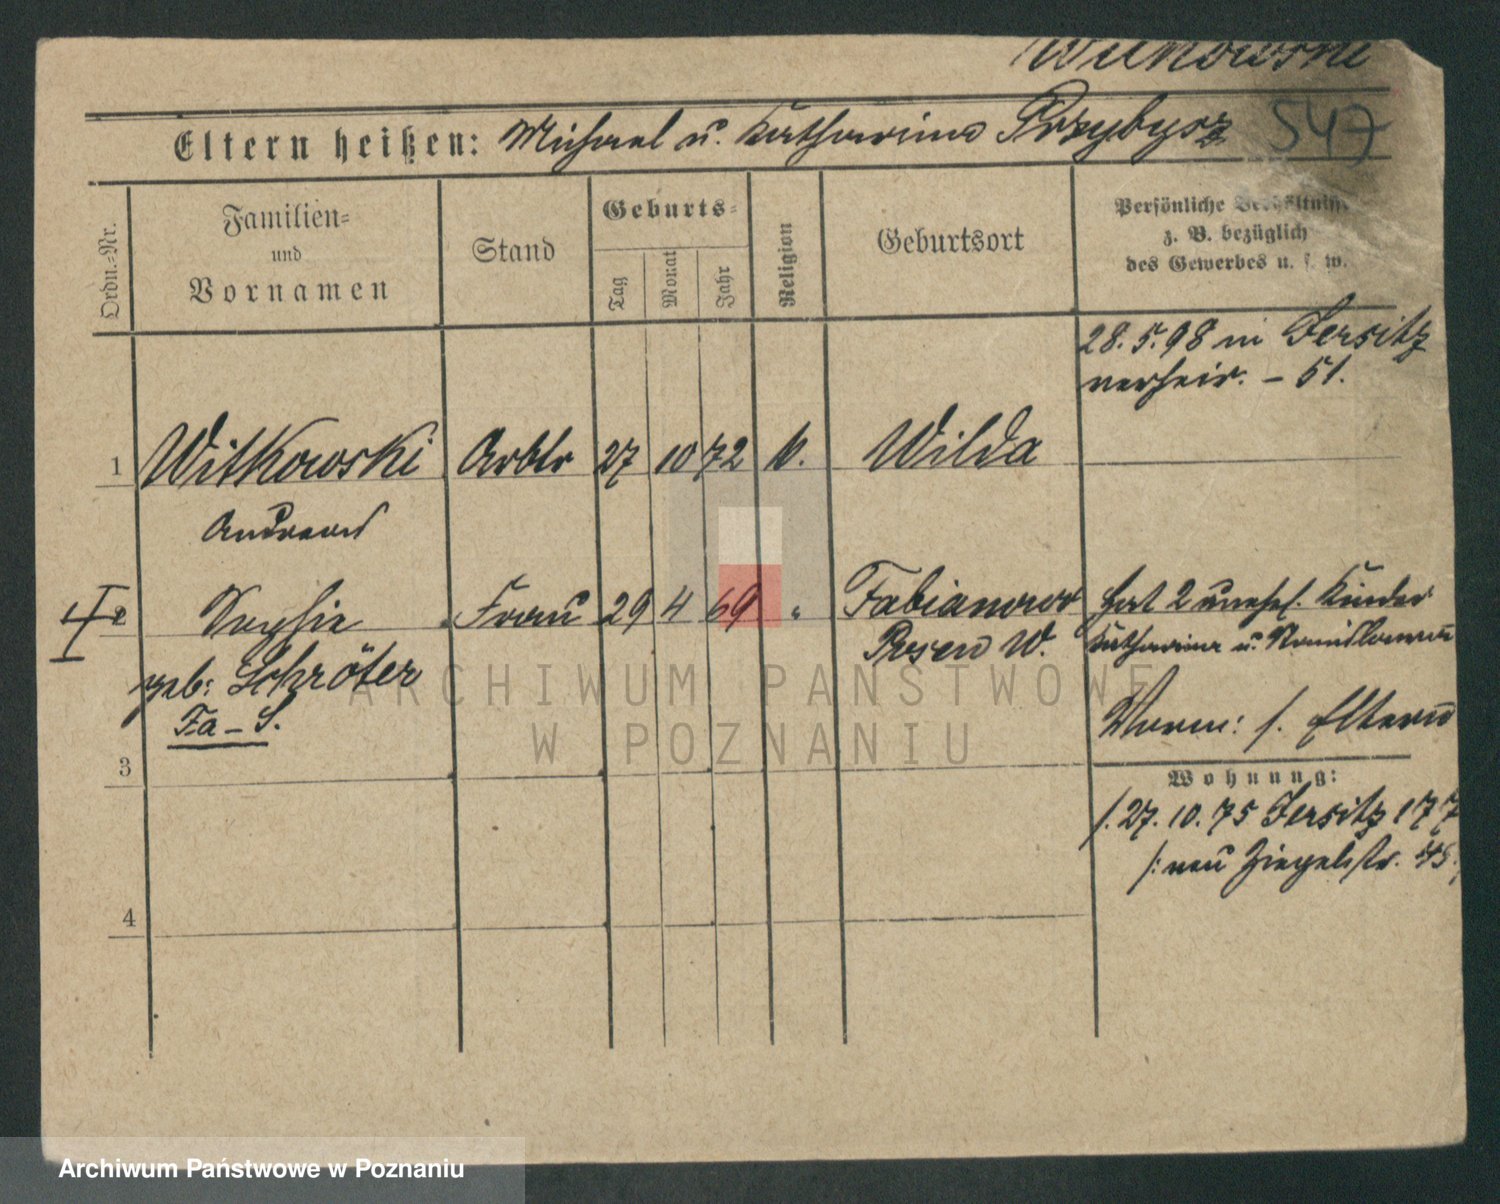 Witkowski
Eltern heißen: Michael u. Katharina Przybysz 547
Ordn.-Nr.
Familien-
und
Vornamen
Stand
Geburts-
Tag
Monat
Jahr
Religion
Geburtsort
Persönliche Verhältnisse
z. B. bezüglich
des Gewerbes u. s. w.
28. 5. 98 in Jersitz
verheir. – 51.
1 Witkowski Arbtr 27 10 72 k. Wilda
Andreas
I 2 Sophie Frau 29 4 69 " Fabianowo hat 2 unehl. Kinder
Posen W. Katharina u. Stanislawa
geb: Schröter
Fa – S.
Vorm: s. Eltern
3
Wohnung:
/. 27. 10. 75 Jersitz 177
/: neu Ziegelstr. 45.
4
ARCHIWUM PAŃSTWOWE
W POZNANIU
Archiwum Państwowe w Poznaniu